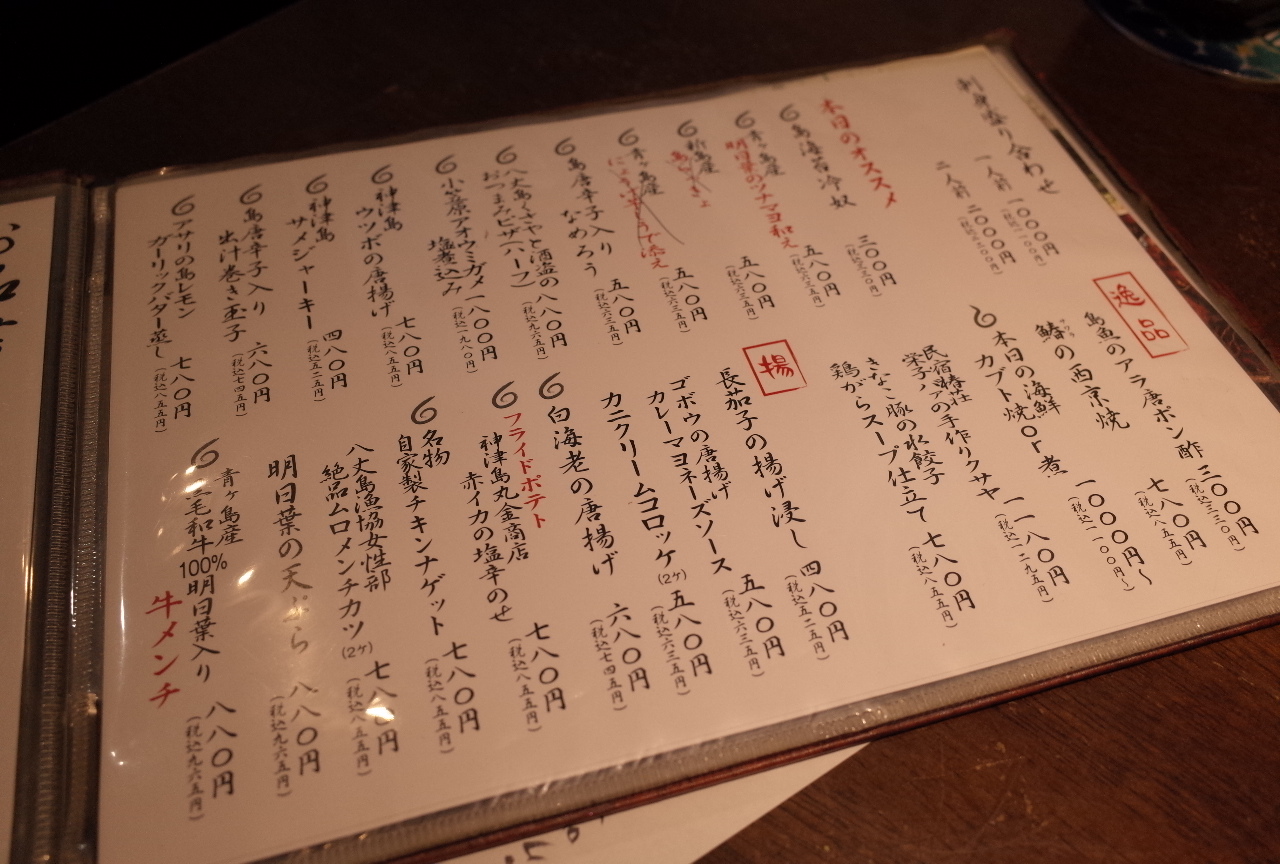 刺身盛り合わせ
一人前 一〇〇〇円
(税込一一〇〇円)
二人前 二〇〇〇円
(税込二二〇〇円)
本日のオススメ
島海苔冷奴 三〇〇円
(税込三三〇円)
青ヶ島産
明日葉のツナマヨ和え 五八〇円
(税込六三五円)
新島産
島らっきょ 五八〇円
(税込六三五円)
青ヶ島産
五八〇円
(税込六三五円)
島唐辛子入り
なめろう 五八〇円
(税込六三五円)
八丈島くさやと酒盗の
おつまみピザ(ハーフ) 八八〇円
(税込九六五円)
小笠原アオウミガメ
塩煮込み 一八〇〇円
(税込一九八〇円)
神津島
ウツボの唐揚げ 七八〇円
(税込八五五円)
神津島
サメジャーキー 四八〇円
(税込五二五円)
島唐辛子入り
出汁巻き玉子 六八〇円
(税込七四五円)
アサリの島レモン
ガーリックバター蒸し 七八〇円
(税込八五五円)
逸品
島魚のアラ唐ポン酢 三〇〇円
(税込三三〇円)
鰆の西京焼 七八〇円
サワラ
(税込八五五円)
本日の海鮮
カブト焼or煮 一〇〇〇円〜
(税込一一〇〇円〜)
民宿時代
栄子ママの手作りクサヤ 一一八〇円
(税込一二九五円)
きなこ豚の水餃子
鶏がらスープ仕立て 七八〇円
(税込八五五円)
揚
長茄子の揚げ浸し 四八〇円
(税込五二五円)
ゴボウの唐揚げ
カレーマヨネーズソース 五八〇円
(税込六三五円)
カニクリームコロッケ(2ケ) 五八〇円
(税込六三五円)
白海老の唐揚げ 六八〇円
(税込七四五円)
フライドポテト
神津島丸金商店
赤イカの塩辛のせ 七八〇円
(税込八五五円)
名物
自家製チキンナゲット 七八〇円
(税込八五五円)
八丈島漁協女性部
絶品ムロメンチカツ(2ケ) 七八〇円
(税込八五五円)
明日葉の天ぷら 八八〇円
(税込九六五円)
青ヶ島産
毛和牛100%明日葉入り
牛メンチ 八八〇円
(税込九六五円)